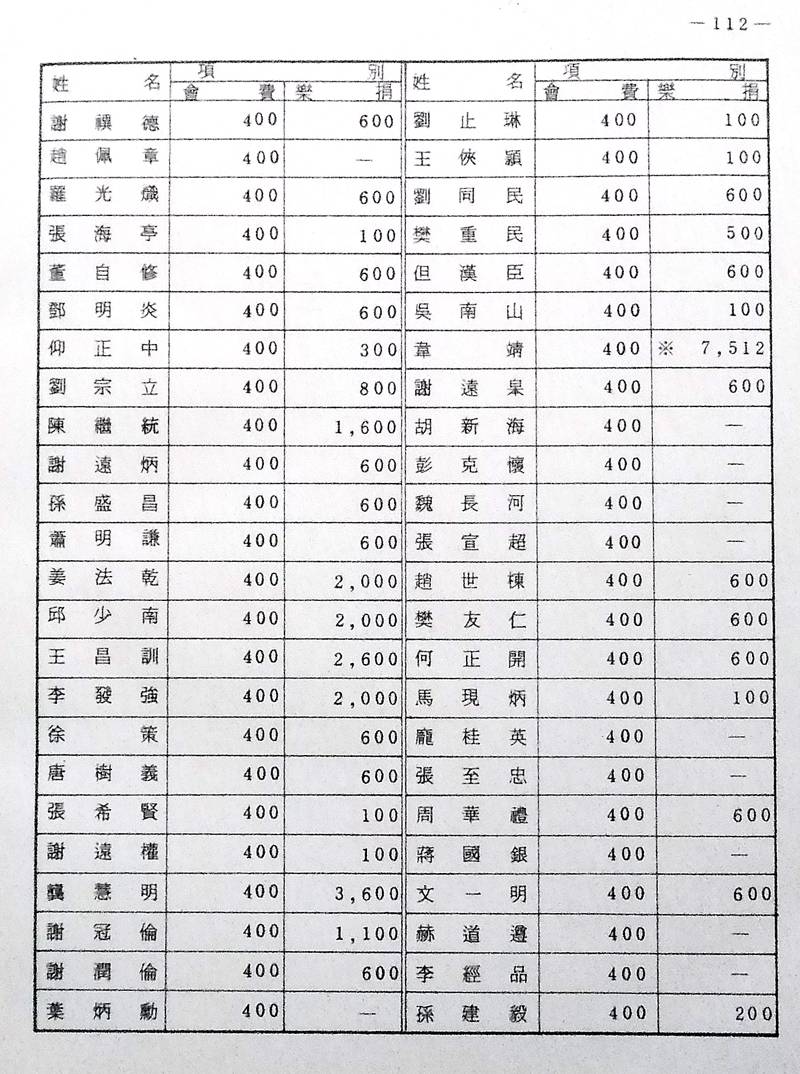 —112—
姓 名 項 別 姓 名 項 別
會 費 樂 捐 會 費 樂 捐
謝禩德 400 600 劉止琳 400 100
趙佩章 400 — 王俠穎 400 100
羅光熾 400 600 劉同民 400 600
張海亭 400 100 樊重民 400 500
董自修 400 600 但漢臣 400 600
鄧明炎 400 600 吳南山 400 100
仰正中 400 300 韋靖 400 ※ 7,512
劉宗立 400 800 謝遠杲 400 600
陳繼統 400 1,600 胡新海 400 —
謝遠炳 400 600 彭克懷 400 —
孫盛昌 400 600 魏長河 400 —
蕭明謙 400 600 張宣超 400 —
姜法乾 400 2,000 趙世棟 400 600
邱少南 400 2,000 樊友仁 400 600
王昌訓 400 2,600 何正開 400 600
李發強 400 2,000 馬現炳 400 100
徐策 400 600 龐桂英 400 —
唐樹義 400 600 張至忠 400 —
張希賢 400 100 周華禮 400 600
謝遠權 400 100 蔣國銀 400 —
龔慧明 400 3,600 文一明 400 600
謝冠倫 400 1,100 赫道遵 400 —
謝潤倫 400 600 李經品 400 —
葉炳勳 400 — 孫建毅 400 200